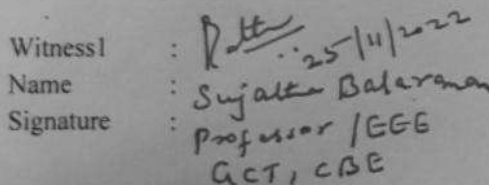 Witness1 : 25/11/2022
Name : Sujatha Balaraman
Signature : Professor / EEE
GCT, CBE